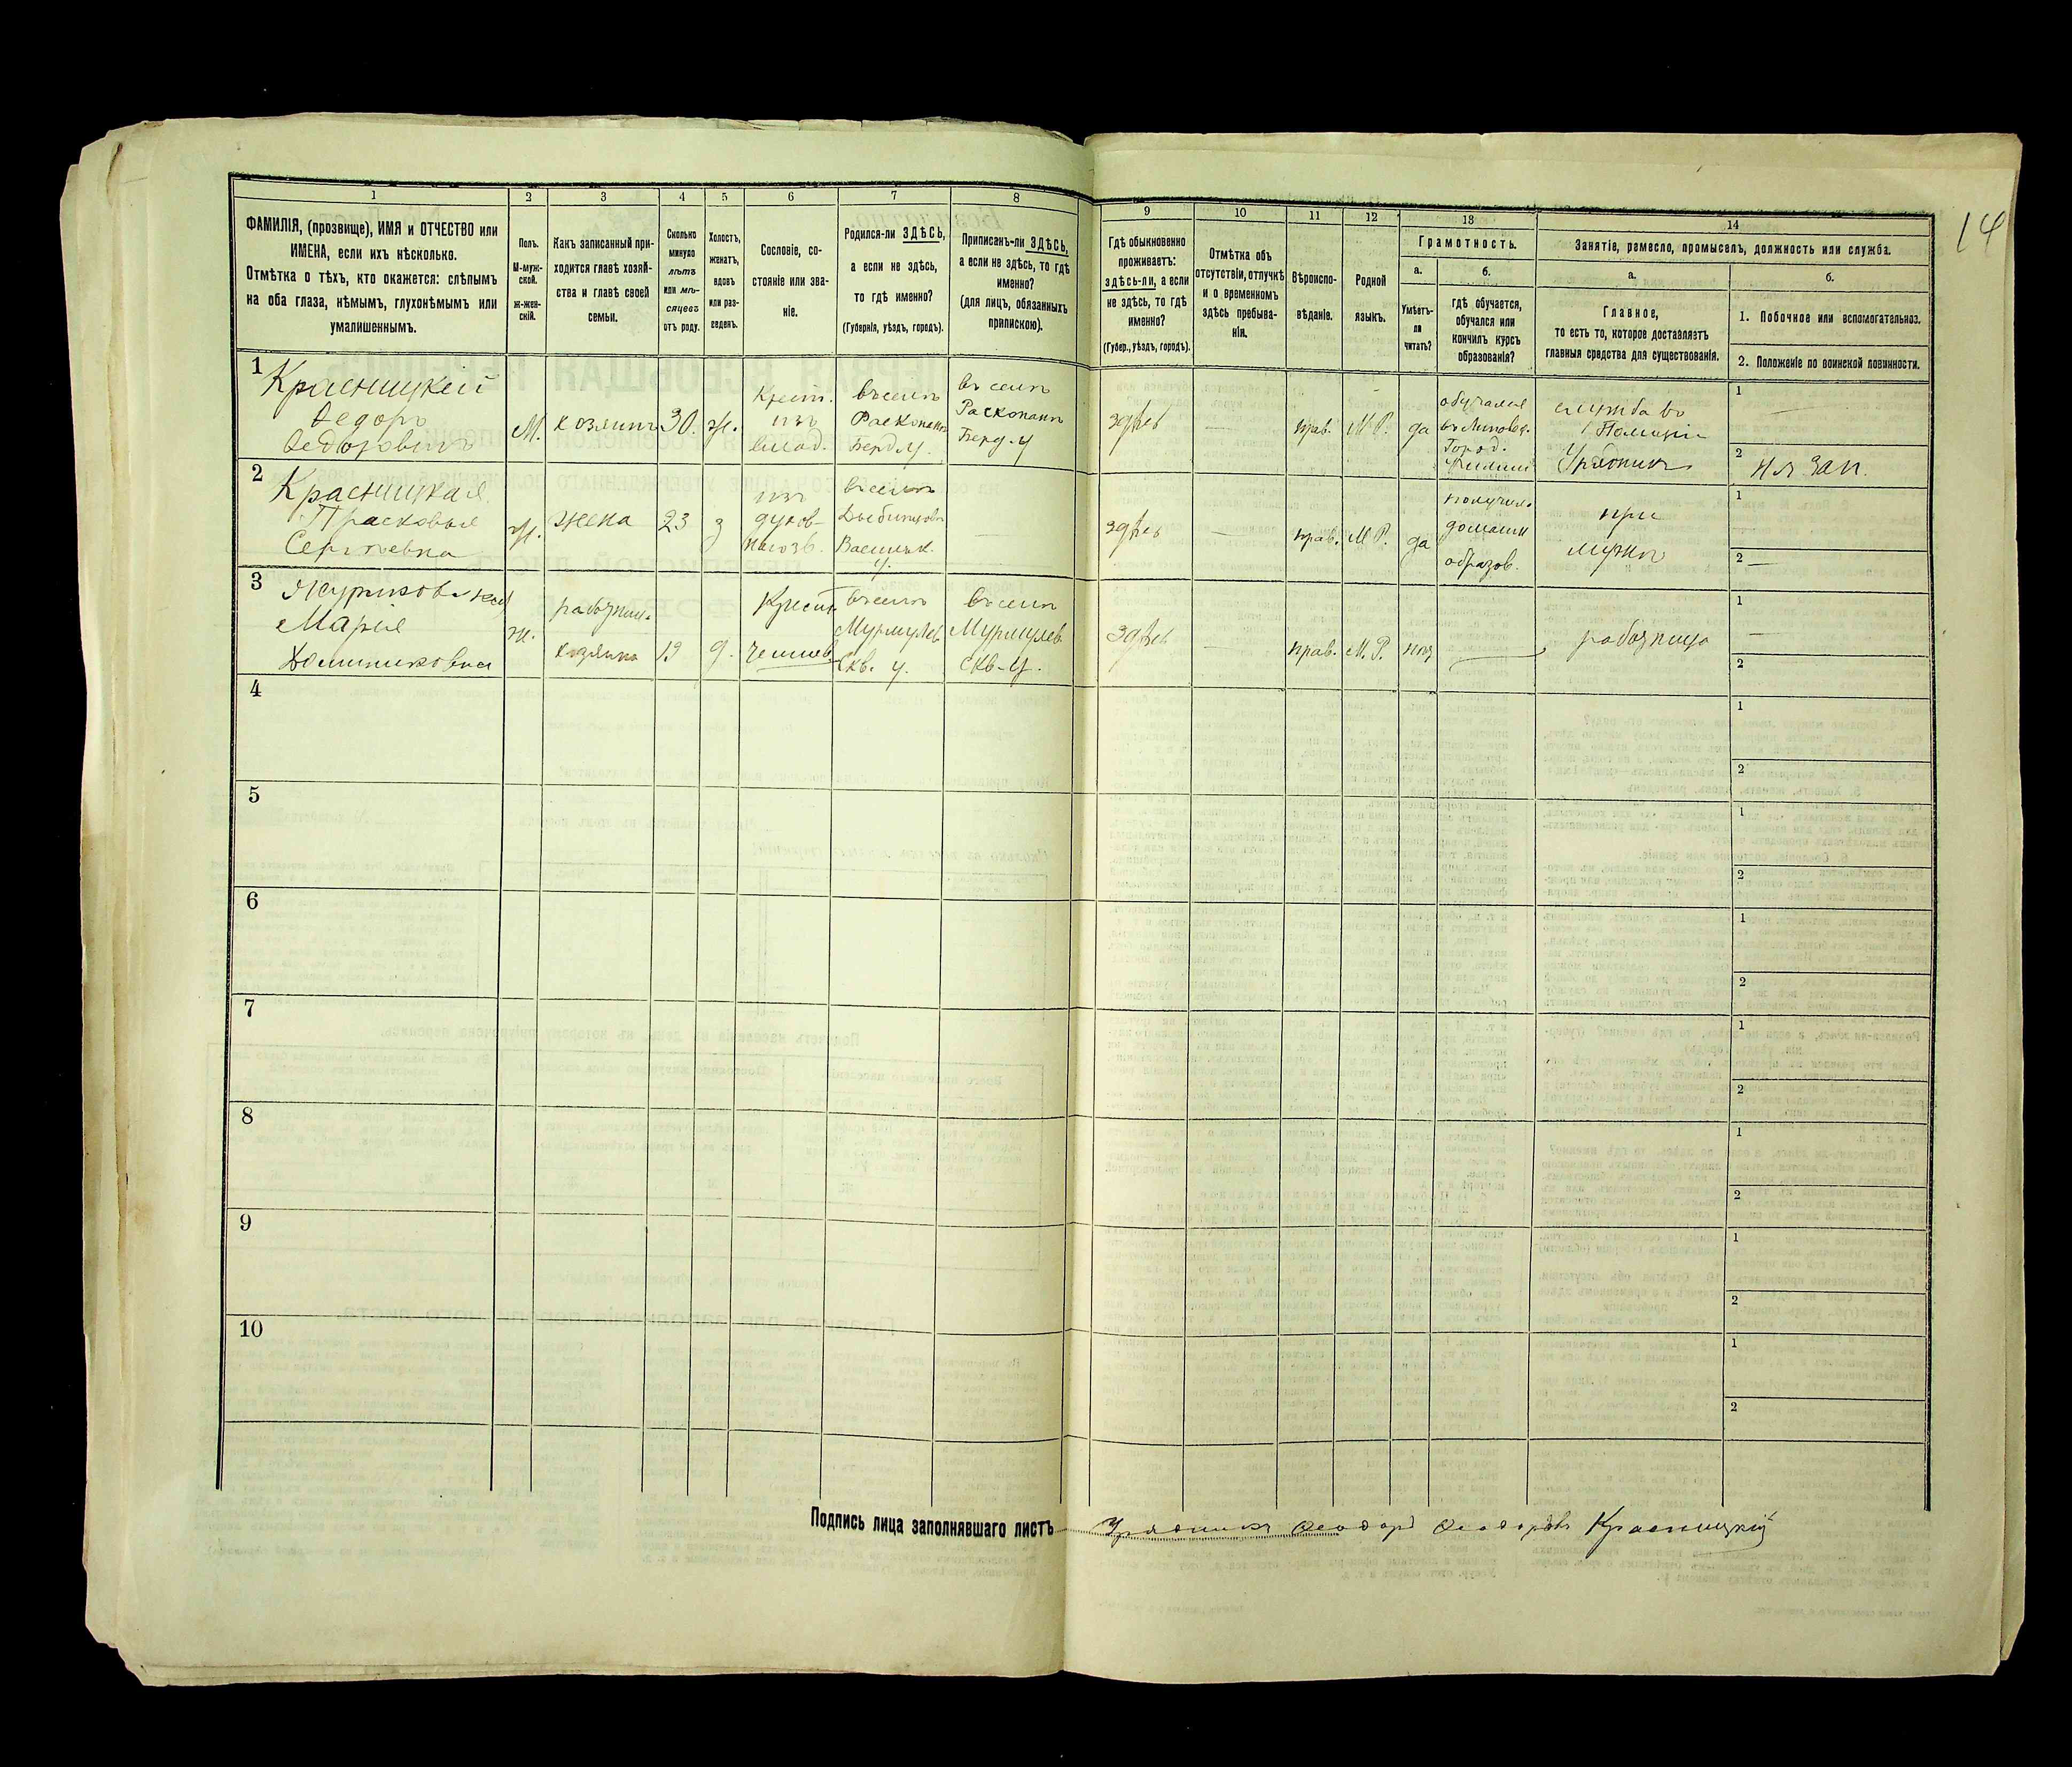 14
1
2
3
4
5
6
7
8
9
10
11
12
13
14
ФАМИЛІЯ, (прозвище), ИМЯ и ОТЧЕСТВО или
ИМЕНА, если ихъ нѣсколько.
Отмѣтка о тѣхъ, кто окажется: слѣпымъ
на оба глаза, нѣмымъ, глухонѣмымъ или
умалишеннымъ.
Полъ.
М-муж-
ской.
ж-жен-
скій.
Какъ записанный при-
ходится главѣ хозяй-
ства и главѣ своей
семьи.
Сколько
минуло
лѣтъ
или мѣ-
сяцевъ
отъ роду.
Холостъ,
женатъ,
вдовъ
или раз-
веденъ.
Сословіе, со-
стояніе или зва-
ніе.
Родился-ли ЗДѢСЬ,
а если не здѣсь,
то гдѣ именно?
(Губернія, уѣздъ, городъ).
Приписанъ-ли ЗДѢСЬ,
а если не здѣсь, то гдѣ
именно?
(для лицъ, обязанныхъ
припискою).
Гдѣ обыкновенно
проживаетъ:
здѣсь-ли, а если
не здѣсь, то гдѣ
именно?
(Губер., уѣздъ, городъ).
Отмѣтка объ
отсутствіи, отлучкѣ
и о временномъ
здѣсь пребыва-
ніи.
Вѣроиспо-
вѣданіе.
Родной
языкъ.
Грамотность.
а.
Умѣетъ-
ли
читать?
б.
гдѣ обучается,
обучался или
кончилъ курсъ
образованія?
Занятіе, ремесло, промыселъ, должность или служба.
а.
Главное,
то есть то, которое доставляетъ
главныя средства для существованія.
б.
1. Побочное или вспомогательное.
2. Положеніе по воинской повинности.
1
Красницкій
Федоръ
Федоровичъ
М.
хозяинъ
30.
ж.
Крест.
изъ
въ селѣ
Расконанѣ
Берд. у.
въ селѣ
Расконанѣ
Берд. у
здѣсь
прав.
М. Р.
да
обучался
въ Липовец.
Город.
служба въ
Полиціи
Урядникъ
1
2
2
Красницкая
Прасковья
Сергѣевна
ж.
жена
23
з
изъ
духов-
наго зв.
въ селѣ
Васильк.
у.
здѣсь
прав.
М. Р.
да
получил.
домашн
образов.
при
мужѣ
1
2
3
Марія
Доминиковна
ж.
работниц.
хозяина
19
д.
Крест.
въ селѣ
Скв. у.
въ селѣ
Скв. у.
здѣсь
прав.
М. Р.
нѣт
работница
1
2
4
1
2
5
1
2
6
1
2
7
1
2
8
1
2
9
1
2
10
1
2
Подпись лица заполнявшаго листъ Урядникъ Феодоръ Феодоровъ Красницкій